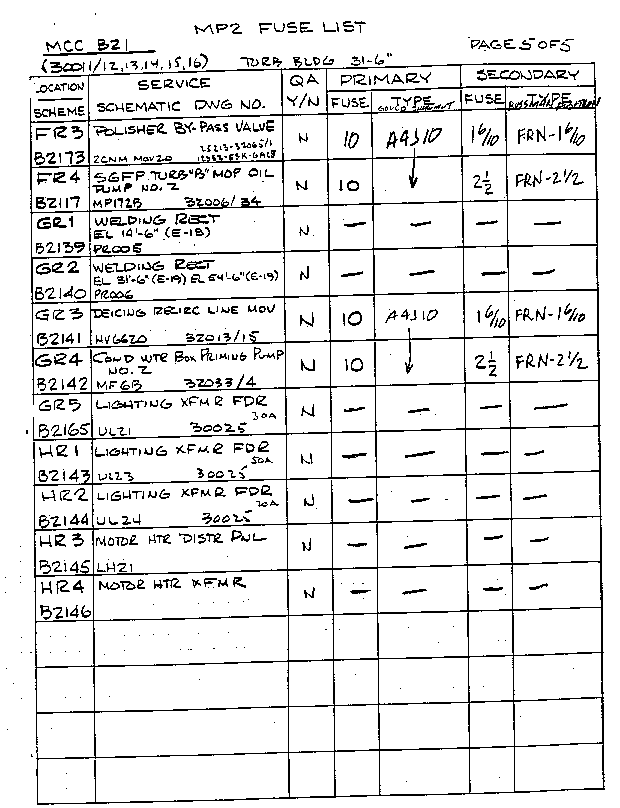 MP2 FUSE LIST
MCC B21
PAGE 5 OF 5
(30011/12,13,14,15,16) TURB BLDG 31-6"
LOCATION SERVICE QA PRIMARY SECONDARY
SCHEME SCHEMATIC DWG NO. Y/N FUSE TYPE FUSE TYPE
FR3 POLISHER BY-PASS VALVE N 10 A4J10 1 6/10 FRN-1 6/10
B2173 2CNM MOV20
FR4 SGFP TURB "B" MOP OIL
PUMP NO. 2 N 10 ↓ 2 1/2 FRN-2 1/2
B2117 MP172B 32006/34
GR1 WELDING RECT
EL 14'-6" (E-18) N — — — —
B2139 PR005
GR2 WELDING RECT
EL 31'-6" (E-19) EL 54'-6" (E-19) N — — — —
B2140 PR006
GR3 DEICING RECIRC LINE MOV N 10 A4J10 1 6/10 FRN-1 6/10
B2141 HV6620 32013/15
GR4 COND WTR BOX PRIMING PUMP
NO. 2 N 10 ↓ 2 1/2 FRN-2 1/2
B2142 MF6B 32033/4
GR5 LIGHTING XFMR FDR
30A N — — — —
B2165 UL21 30025
HR1 LIGHTING XFMR FDR
50A N — — — —
B2143 UL23 30025
HR2 LIGHTING XFMR FDR
N — — — —
B2144 UL24 30025
HR3 MOTOR HTR DISTR PNL N — — — —
B2145 LH21
HR4 MOTOR HTR XFMR N — — — —
B2146